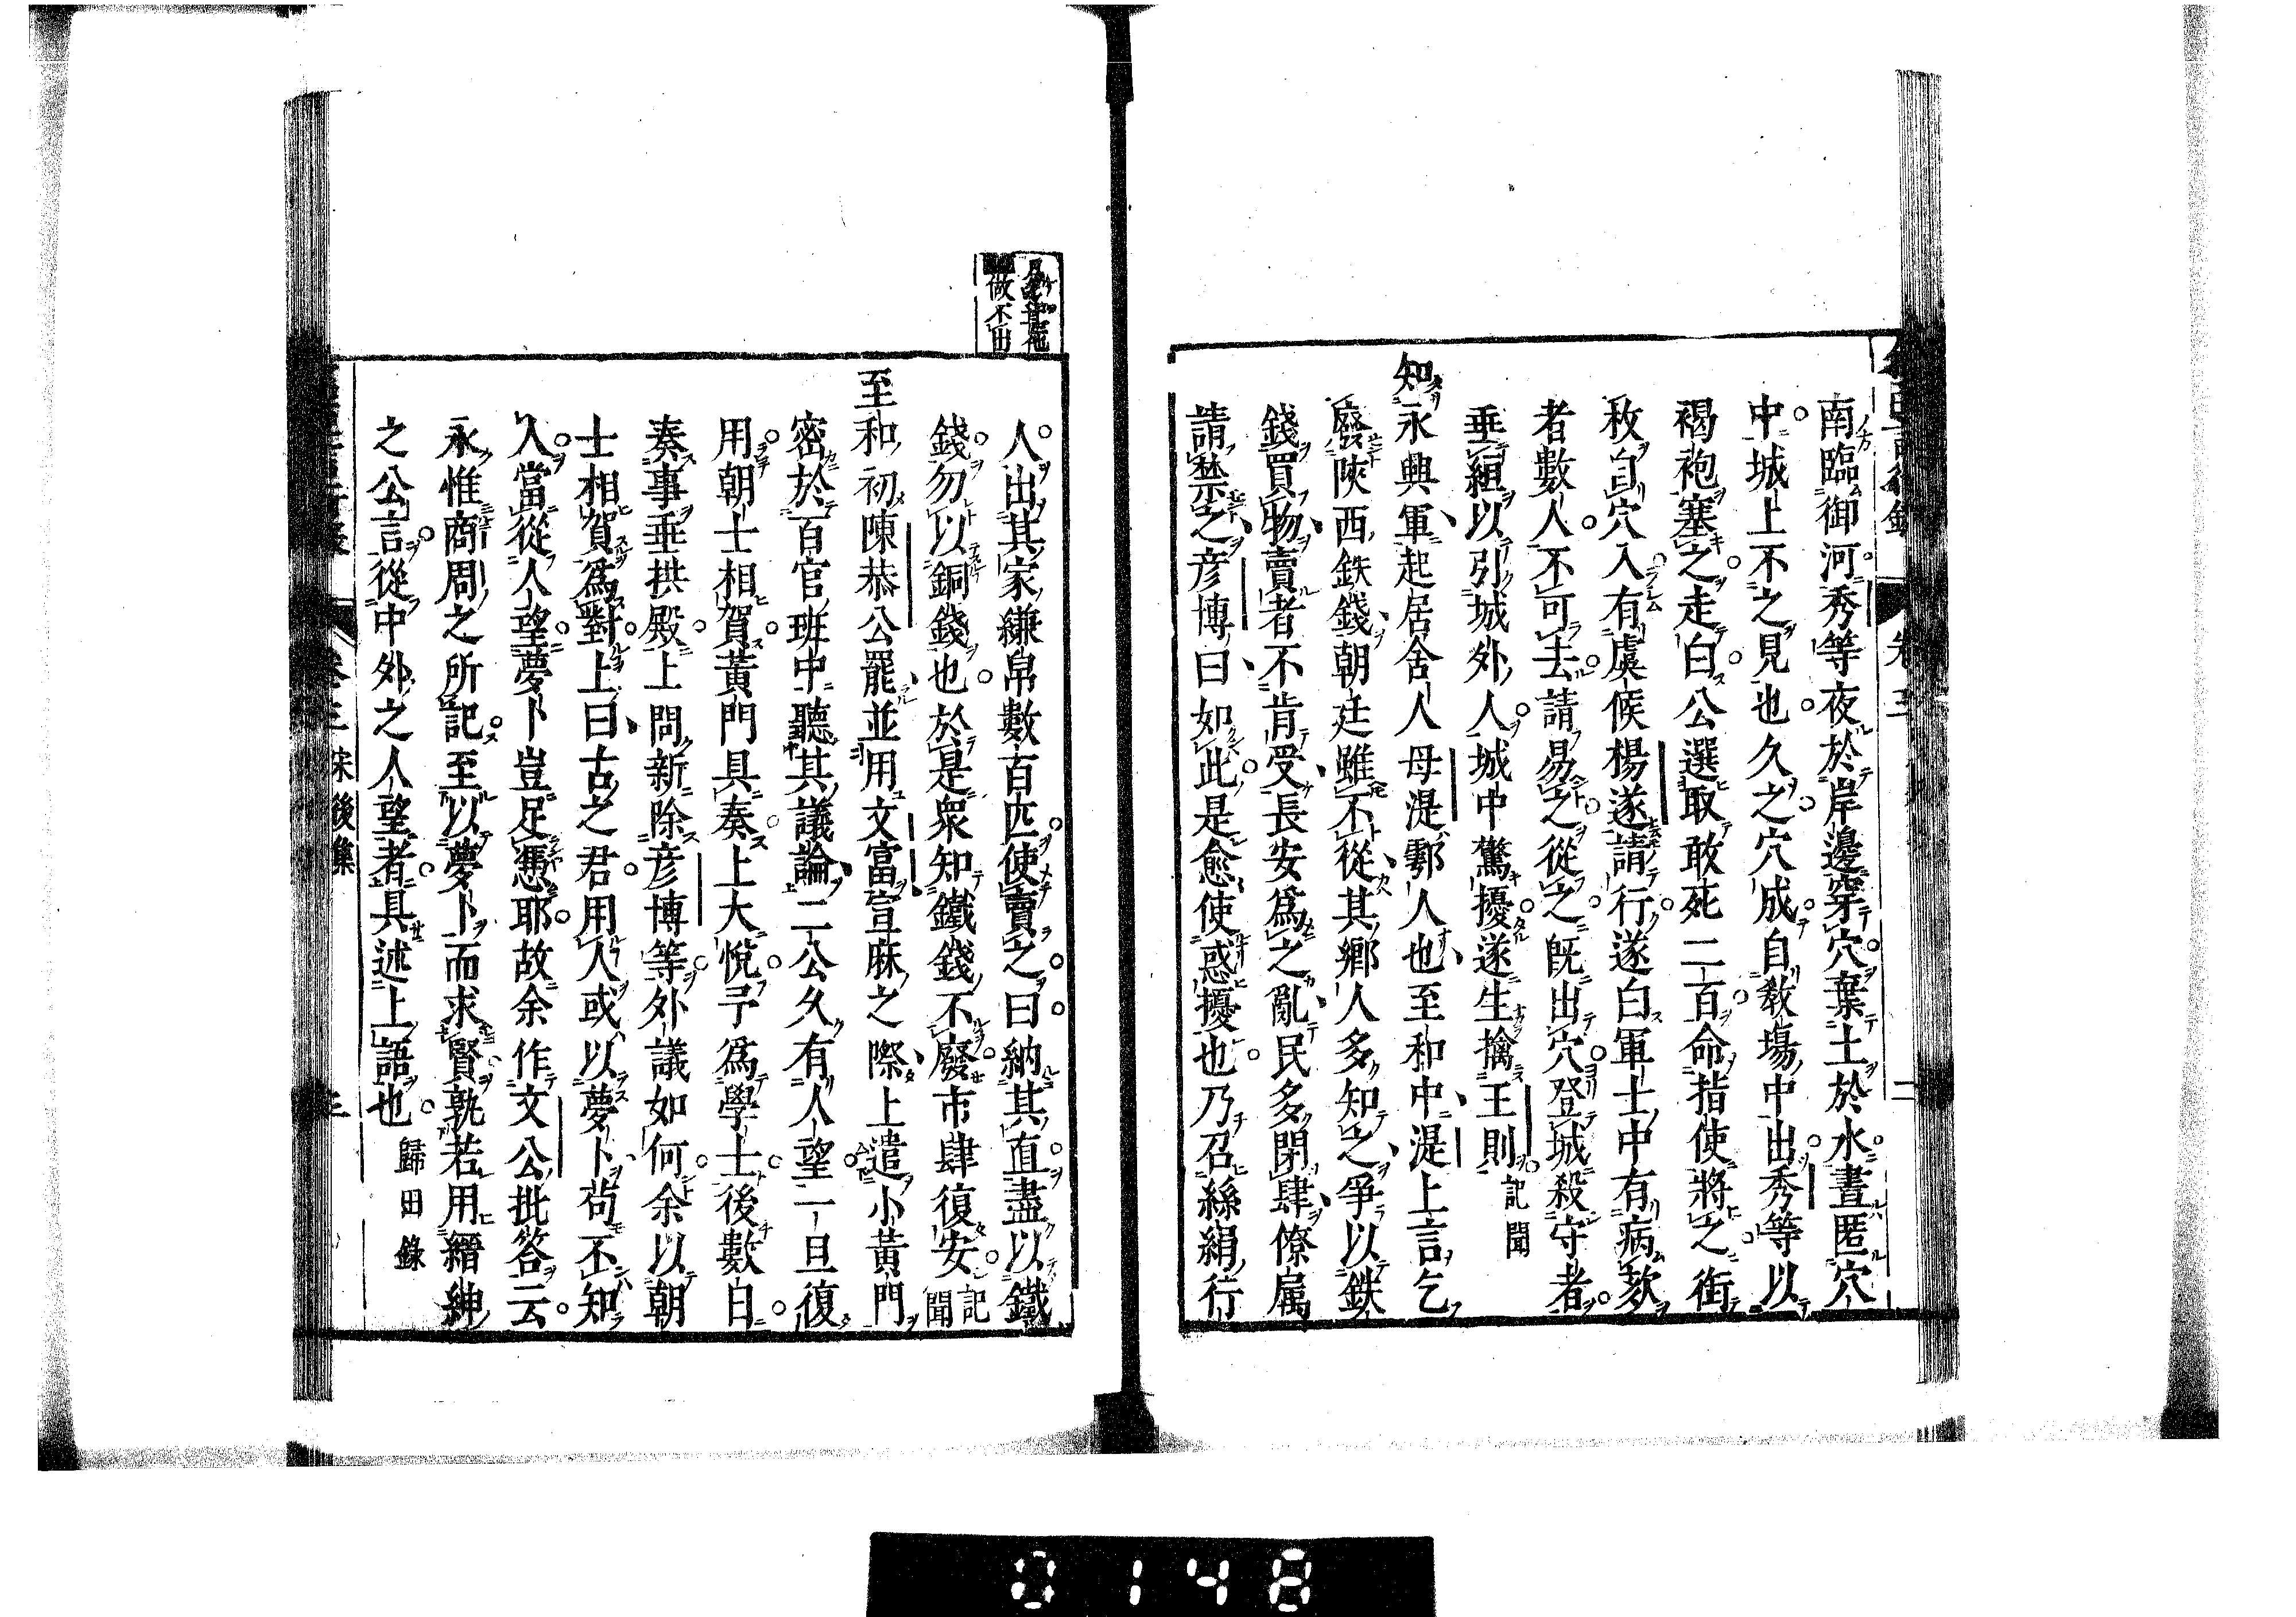 南臨御河秀等夜於岸邊穿穴棄土於水晝匿穴
中城上不之見也久之穴成自教場中出秀等以
褐袍塞之走白公選取敢死二百命指使將之銜
枚自穴入有虞候楊遂請行遂白軍士中有病欬
者數人不可去請易之從之既出穴登城殺守者
垂縆以引城外人城中驚擾遂生擒王則記聞
知永興軍起居舍人母湜鄠人也至和中湜上言乞
廢陝西鉄錢朝廷雖不從其鄉人多知之爭以鉄
錢買物賣者不肯受長安為之亂民多閉肆僚属
請禁之彦博曰如此是愈使惑擾也乃召絲絹行
做不出
人出其家縑帛數百匹使賣之曰納其直盡以鐵
錢勿以銅錢也於是衆知鐵錢不廢市肆復安記聞
至和初陳恭公罷並用文富宣麻之際上遣小黃門
密於百官班中聽其議論二公久有人望一旦復
用朝士相賀黃門具奏上大悅予爲學士後數日
奏事垂拱殿上問新除彦博等外議如何余以朝
士相賀爲對上曰古之君用人或以夢卜苟不知
人當從人望夢卜豈足憑耶故余作文公批答云
永惟商周之所記至以夢卜而求賢孰若用縉紳
之公言從中外之人望者具述上語也歸田錄
卷三宋後集 三